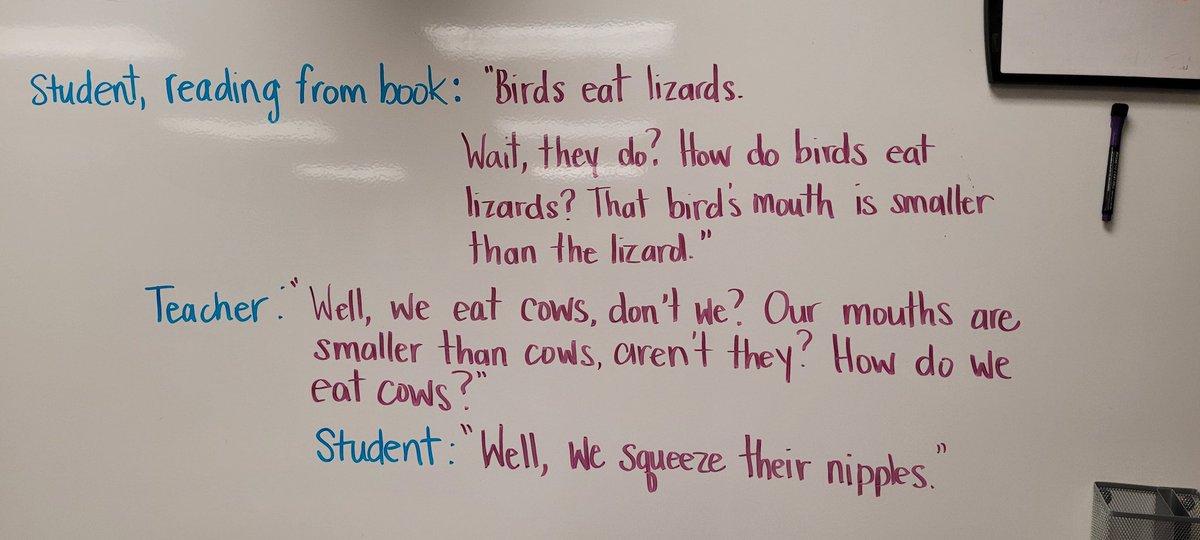 Student, reading from book: "Birds eat lizards.
Wait, they do? How do birds eat
lizards? That bird's mouth is smaller
than the lizard."
Teacher: "Well, we eat cows, don't we? Our mouths are
smaller than cows, aren't they? How do we
eat cows?"
Student: "Well, we squeeze their nipples."